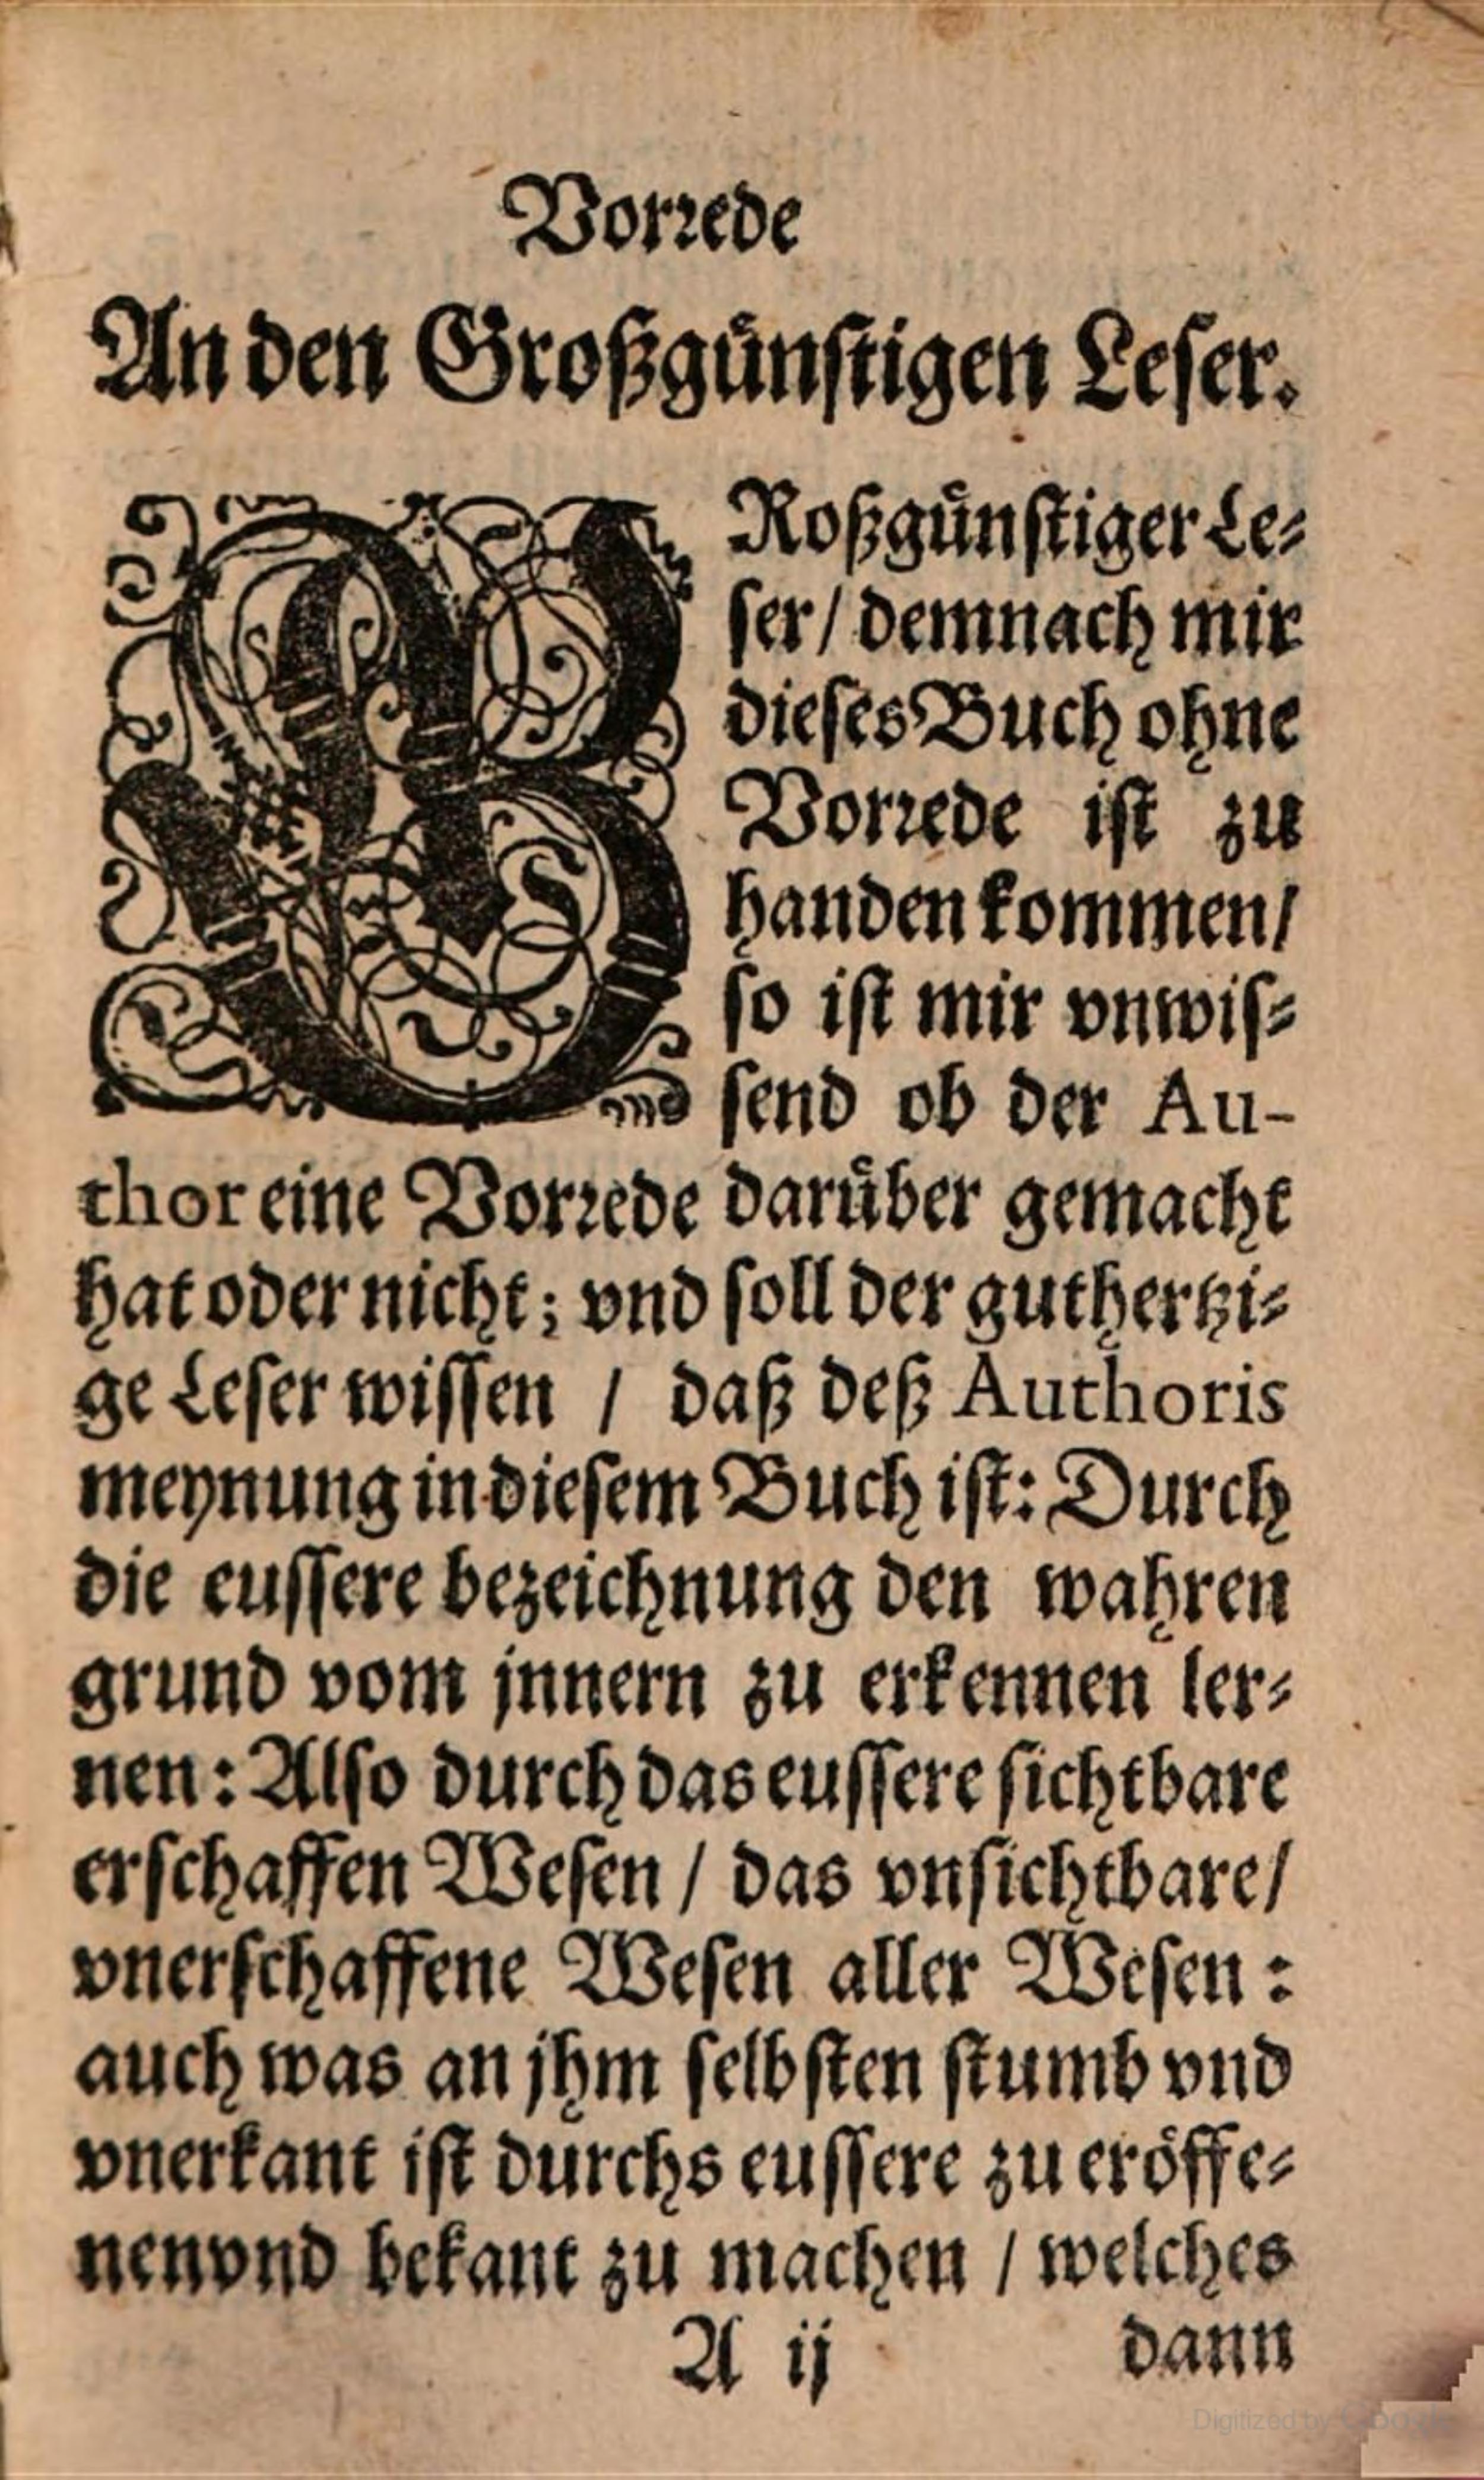 Vorꝛede
An den Großguͤnſtigen Leſer.
GRoßguͤnſtiger Le⸗
ſer / demnach mir
dieſes Buch ohne
Vorꝛede iſt zu
handen kommen /
ſo iſt mir vnwiſ⸗
ſend ob der Au-
thor eine Vorꝛede daruͤber gemacht
hat oder nicht; vnd ſoll der guthertzi⸗
ge Leſer wiſſen / daß deß Authoris
meynung in dieſem Buch iſt: Durch
die euſſere bezeichnung den wahren
grund vom jnnern zu erkennen ler⸗
nen: Alſo durch das euſſere ſichtbare
erſchaffen Weſen / das vnſichtbare /
vnerſchaffene Weſen aller Weſen:
auch was an jhm ſelbſten ſtumb vnd
vnerkant iſt durchs euſſere zu eroͤffe⸗
nen vnd bekant zu machen / welches
A ij dann
Digitized by Google